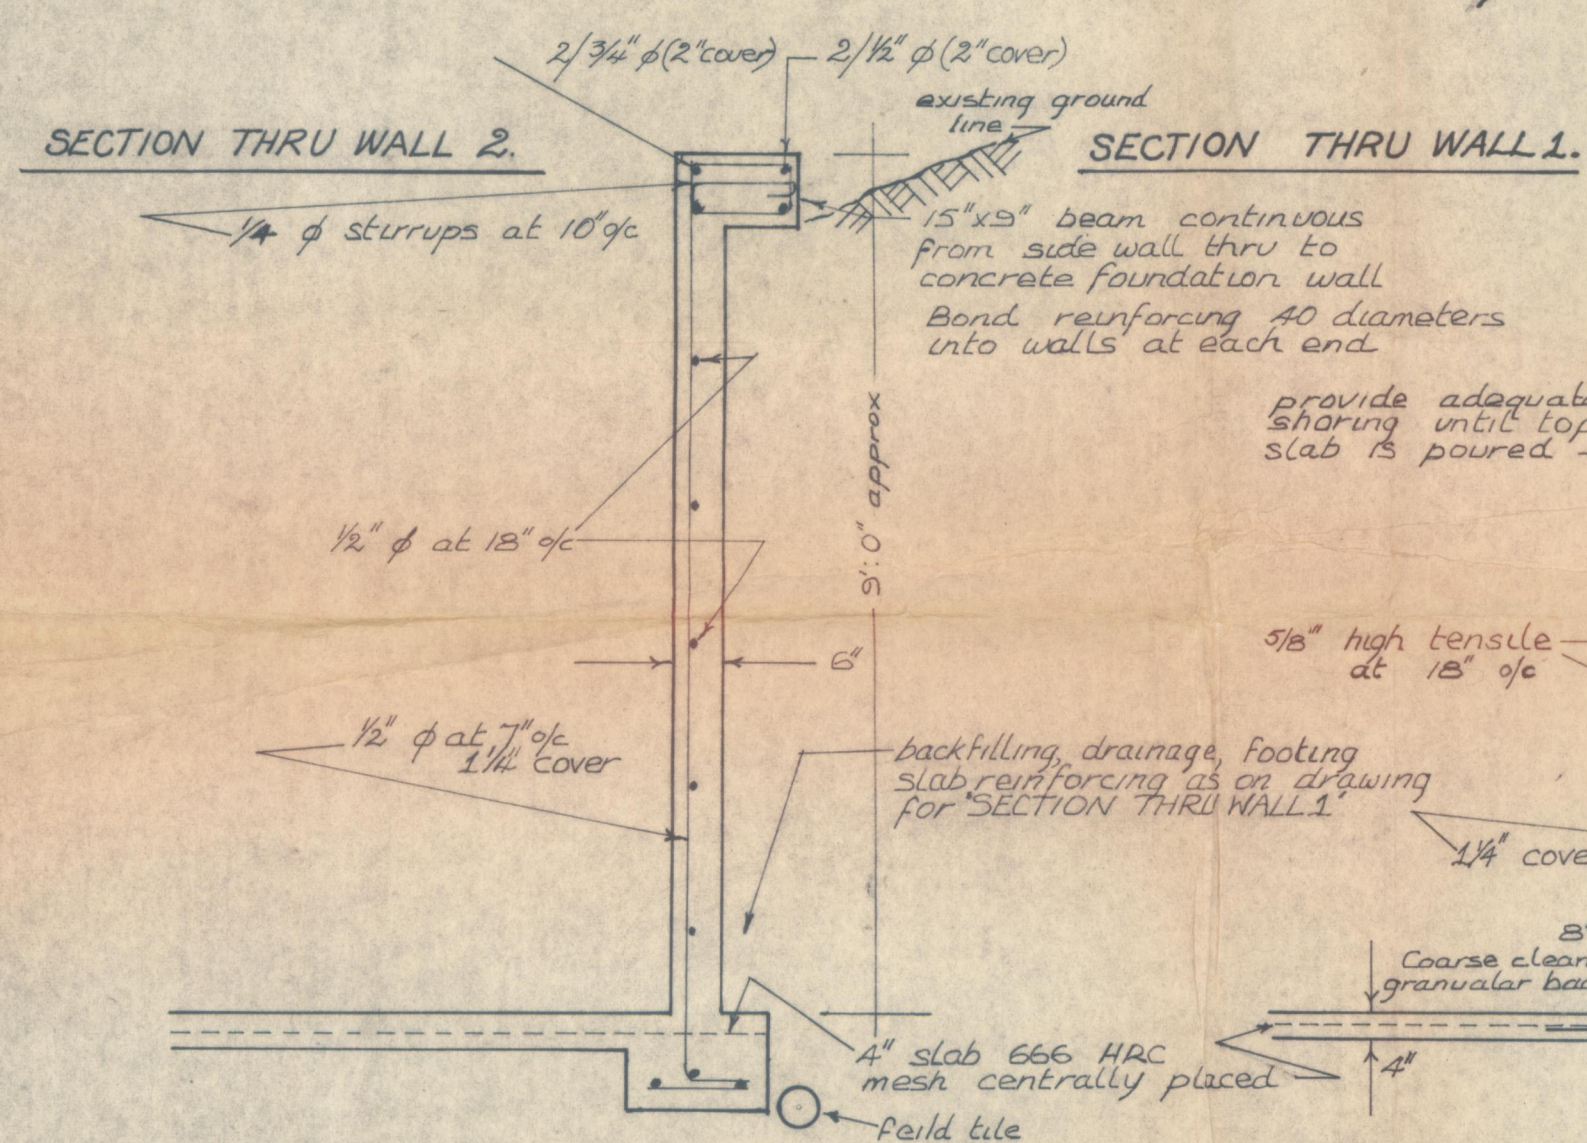 2/3/4" ϕ (2" cover)
2/1/2" ϕ (2" cover)
existing ground
line
SECTION THRU WALL 2.
SECTION THRU WALL 1.
1/4 ϕ stirrups at 10" o/c
15"x9" beam continuous
from side wall thru to
concrete foundation wall
Bond reinforcing 40 diameters
into walls at each end
provide adequat
shoring until top
slab is poured
9':0" approx
1/2" ϕ at 18" o/c
5/8" high tensile
at 18" o/c
6"
1/2" ϕ at 7" o/c
1 1/4" cover
backfilling, drainage, footing
slab reinforcing as on drawing
for "SECTION THRU WALL 1"
1 1/4" cove
8"
Coarse clean
granualar bac
4" slab 666 HRC
mesh centrally placed
4"
feild tile